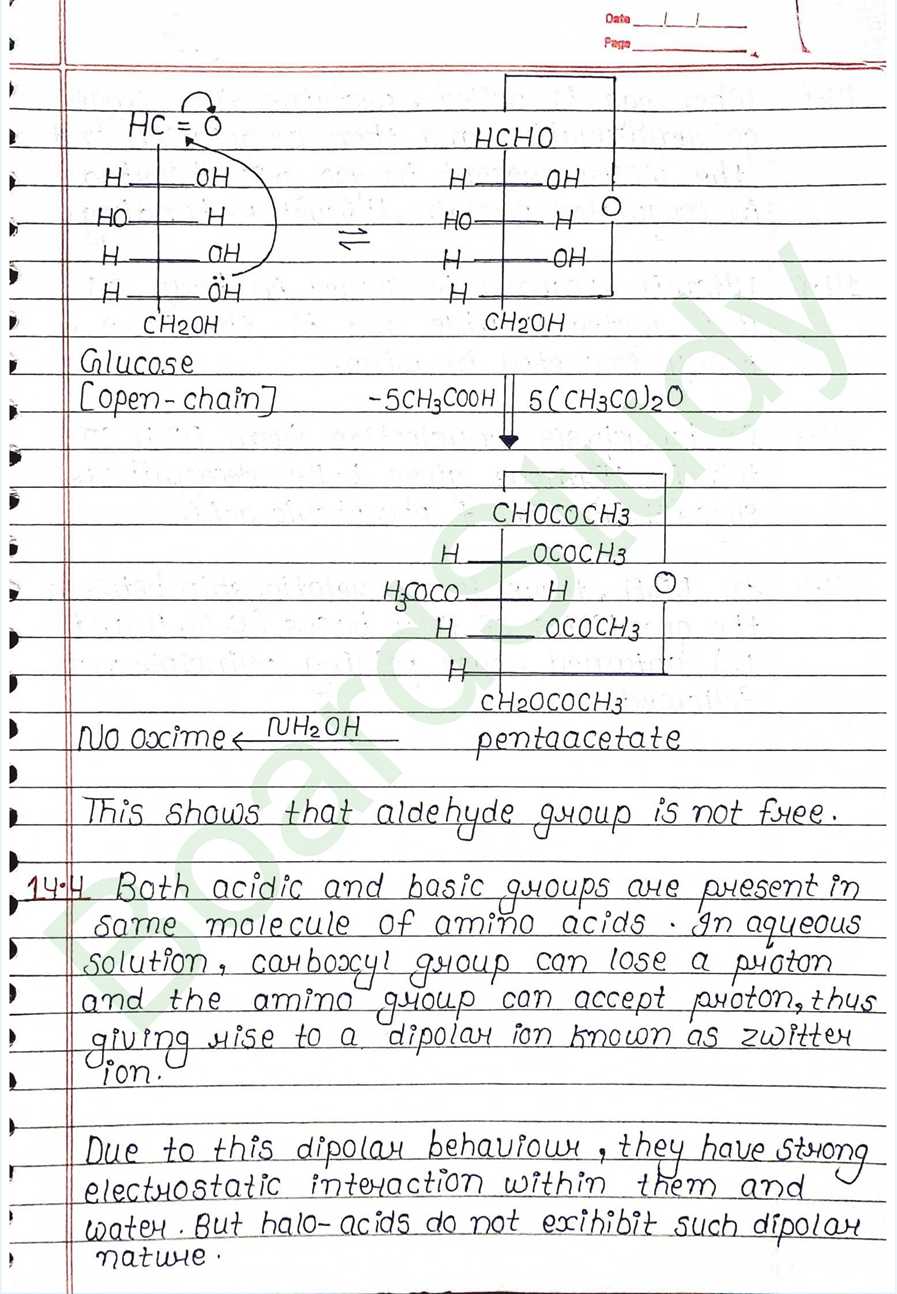 Date / /
Page
HC = O
H OH
HO H
H OH
H ÖH
CH2OH
⇌
HCHO
H OH
HO H
H OH
H
CH2OH
O
Glucose
[open-chain]
-5CH3COOH 5(CH3CO)2O
CHOCOCH3
H OCOCH3
H3COCO H
H OCOCH3
H
CH2OCOCH3
O
No oxime ← NH2OH pentaacetate
This shows that aldehyde group is not free.
14.4 Both acidic and basic groups are present in
same molecule of amino acids. In aqueous
solution, carboxyl group can lose a proton
and the amino group can accept proton, thus
giving rise to a dipolar ion known as zwitter
ion.
Due to this dipolar behaviour, they have strong
electrostatic interaction within them and
water. But halo-acids do not exihibit such dipolar
nature.
BoardStudy